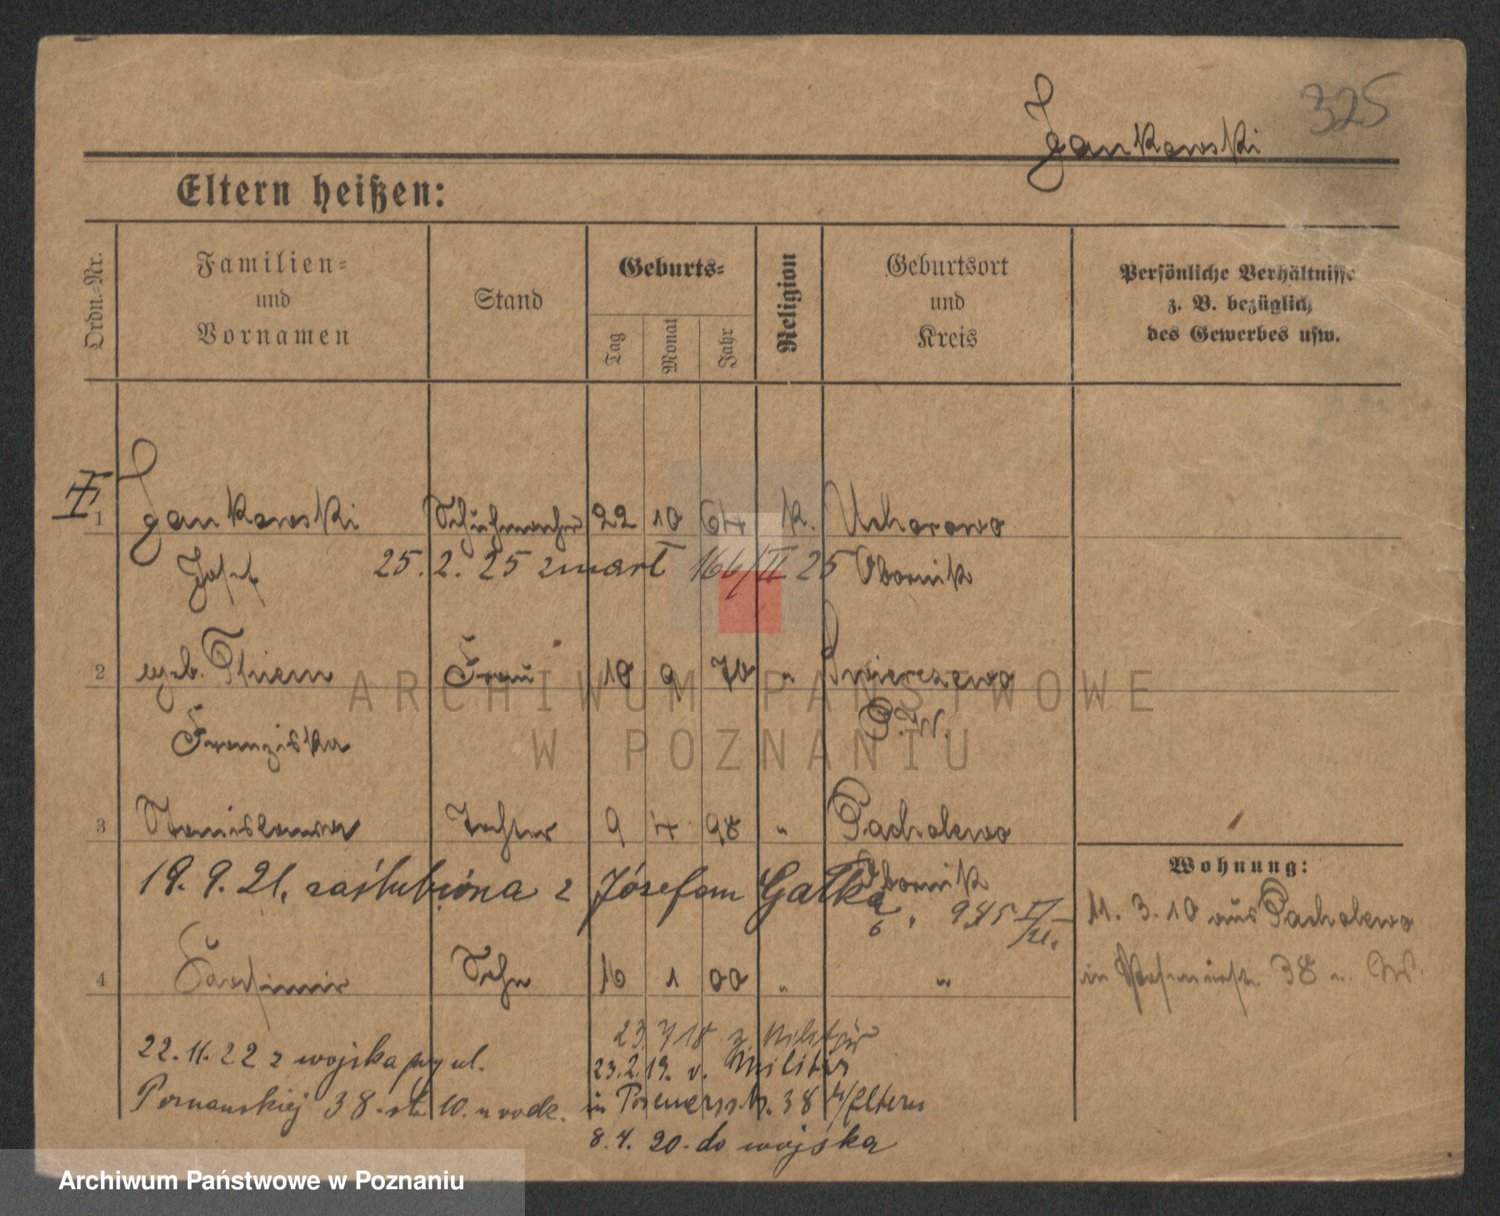 325
Jankowski
Eltern heißen:
Ordn.-Nr.
Familien-
und
Vornamen
Stand
Geburts-
Tag
Monat
Jahr
Religion
Geburtsort
und
Kreis
Persönliche Verhältnisse
z. B. bezüglich
des Gewerbes usw.
1 Jankowski Schuhmacher 22 10 64 k. Uchorowo
Josef 25. 2. 25 zmarł 166/II 25 Obornik
2 geb. Thiem Frau 18 9 70 " Swierczewo
Franziska P. W.
3 Stanislawa Tochter 9 4 98 " Pacholewo
Obornik
19. 9. 21. zaślubiona z Józefem Gałka 945
4 Casimir Sohn 16 1 00 " "
Wohnung:
11. 3. 10 aus Pacholewo
in 38
22. 11. 22 z wojska przy ul.
Poznańskiej 38
23 18 z. Militär
23.2.19. v. Militär
in Posenerstr. 38 Eltern
8. 4. 20. do wojska
ARCHIWUM PAŃSTWOWE
W POZNANIU
Archiwum Państwowe w Poznaniu